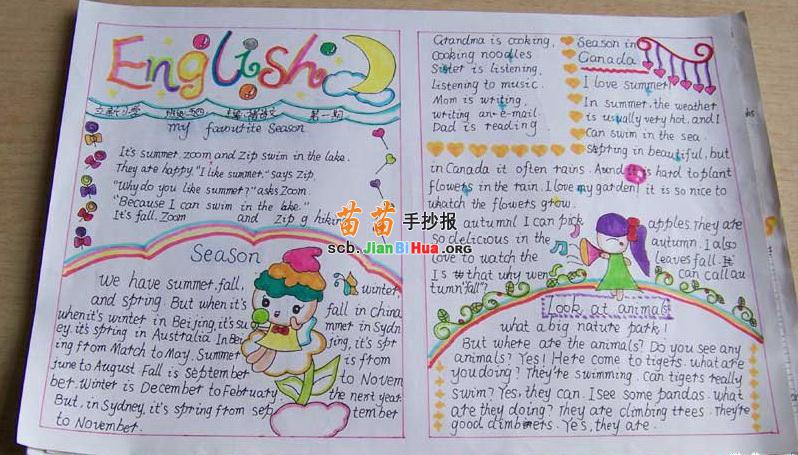 English
my favourite Season
It's summer. Zoom and Zip swim in the lake.
They are happy. "I like summer," says Zip.
"Why do you like summer?" asks Zoom.
"Because I can swim in the lake."
It's fall. Zoom and Zip g hikin
苗苗手抄报
scb.JianBiHua.org
Season
We have summer, fall, winter,
and spring. But when it's fall in china
when it's winter in Beijing, it's su mmer in Sydn
ey. it's spring in Australia. In Bei jing, it's spr
ing from March to May. Summer is from
june to August Fall is september to Novem
ber. Winter is December to February the next year.
But, in Sydney, it's spring from sep tember
to November.
Grandma is cooking,
Cooking noodles
Sister is listening,
Listening to music.
Mom is writing,
writing an e-mail.
Dad is reading
Season in
Canada
I love summer
In summer, the weather
is usually very hot, and I
Can swim in the sea.
Spring in beautiful, but
in Canada it often rains. And is hard to plant
flowers in the rain. I love my garden! it is so nice to
watch the flowers grow.
autumn! I can pick apples. They are
so delicious in the autumn. I also
love to watch the leaves fall. It
Is that why wen can call au
tumn "fall"?
Look at animals
what a big nature park!
But where are the animals? Do you see any
animals? Yes! Here come to tigers. what are
you doing? They're swimming. Can tigers really
swim? Yes, they can. I see some pandas. what
are they doing? They are climbing trees. They're
good climbers. Yes, they are.